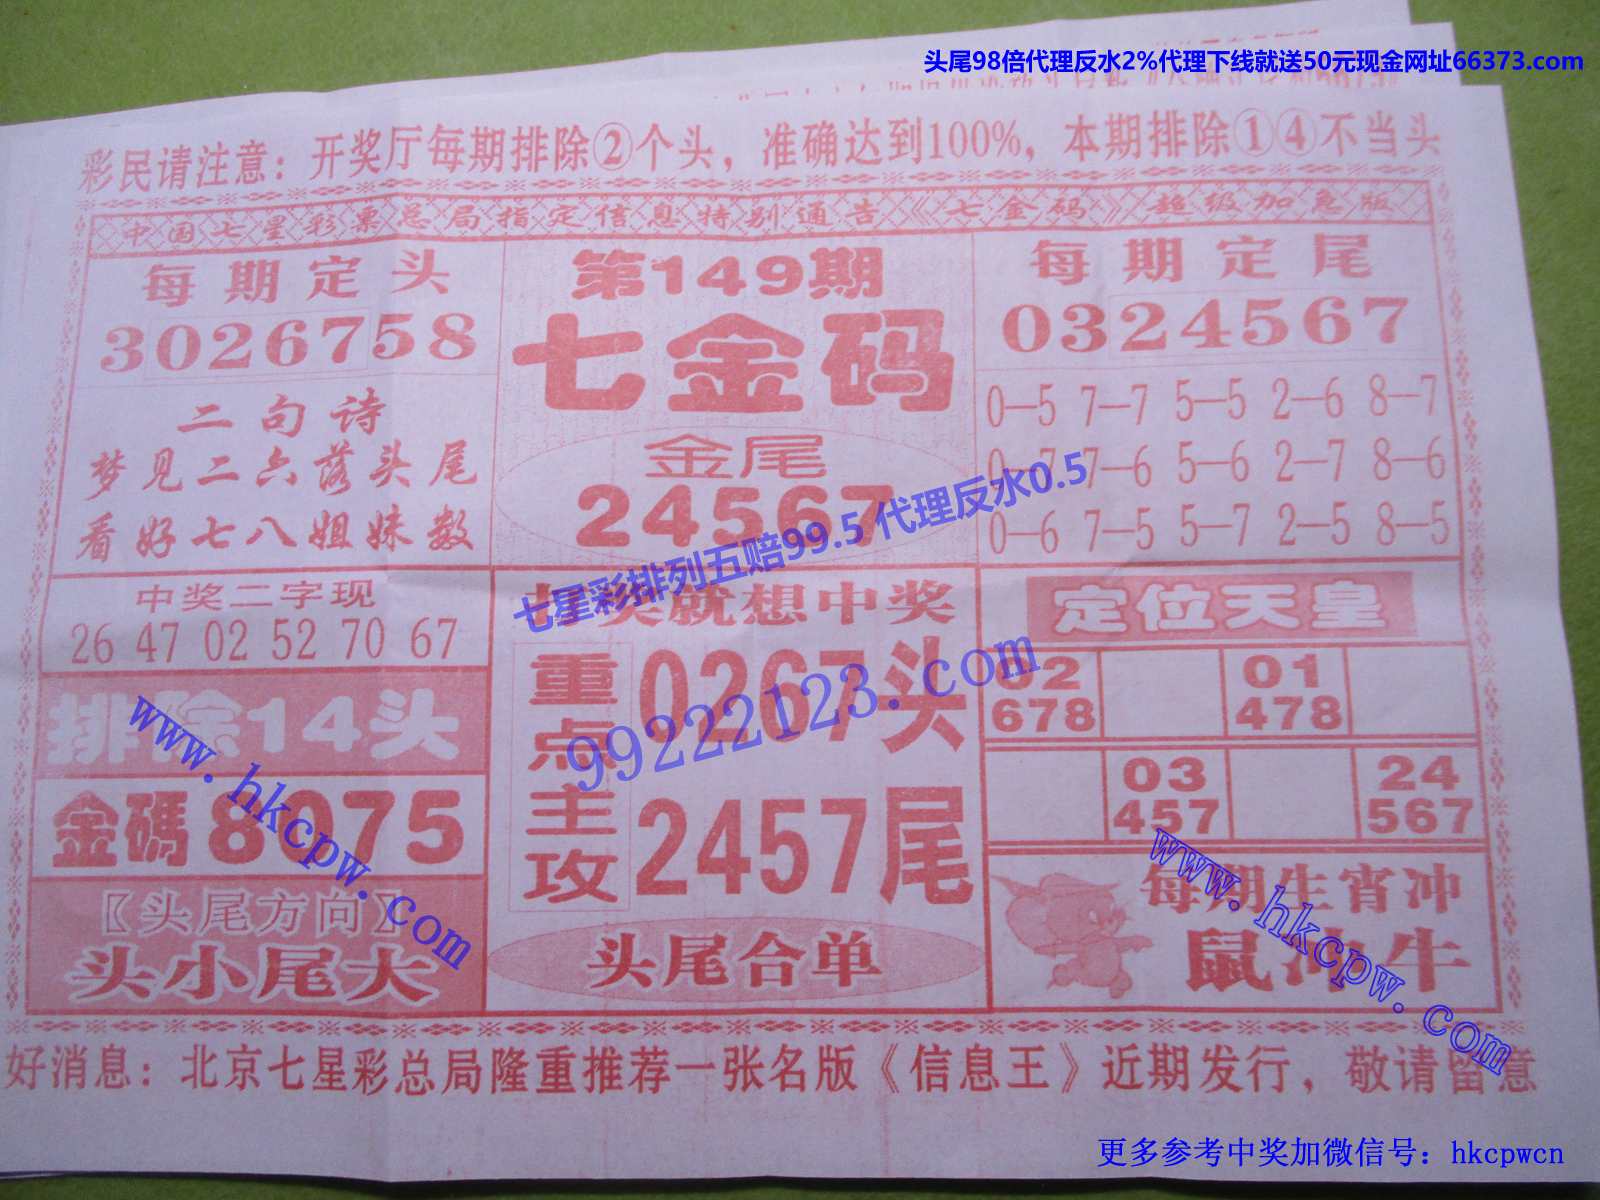 头尾98倍代理反水2%代理下线就送50元现金网址66373.com
彩民请注意：开奖厅每期排除②个头，准确达到100%，本期排除①④不当头
中国七星彩票总局指定信息特别通告《七金码》超级加急版
每期定头
3026758
二句诗
梦见二六落头尾
看好七八姐妹数
第149期
七金码
金尾
24567
每期定尾
0324567
0—5 7—7 5—5 2—6 8—7
0—7 7—6 5—6 2—7 8—6
0—6 7—5 5—7 2—5 8—5
七星彩排列五赔99.5 代理反水0.5
中奖二字现
26 47 02 52 70 67
排除14头
金碼8075
〖头尾方向〗
头小尾大
就想中奖
重点主攻
0267头
2457尾
头尾合单
99222123.com
定位天皇
02 01
678 478
03 24
457 567
每期生宵冲
鼠冲牛
www.hkcpw.com
www.hkcpw.com
好消息：北京七星彩总局隆重推荐一张名版《信息王》近期发行，敬请留意
更多参考中奖加微信号：hkcpwcn